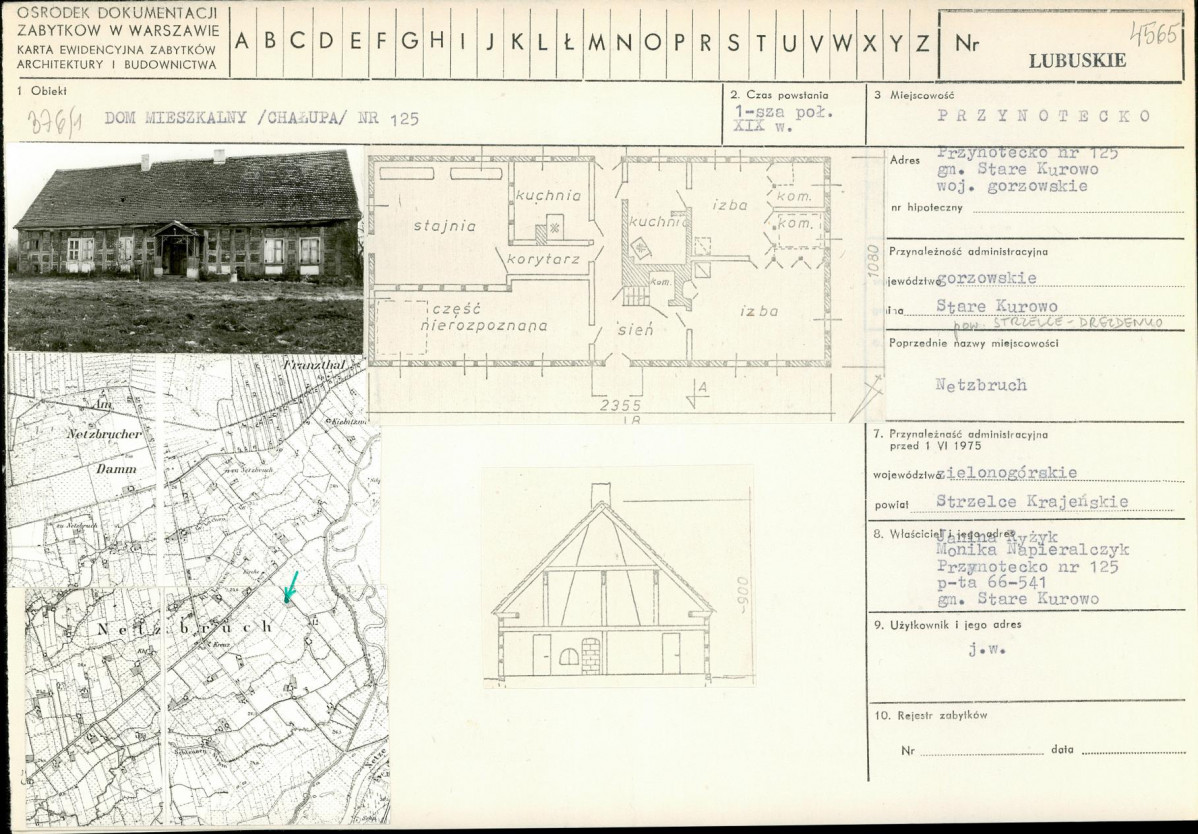 OŚRODEK DOKUMENTACJI
ZABYTKÓW W WARSZAWIE
KARTA EWIDENCYJNA ZABYTKÓW
ARCHITEKTURY I BUDOWNICTWA
A B C D E F G H I J K L Ł M N O P R S T U V W X Y Z
Nr
4565
LUBUSKIE
1 Obiekt
376/1
DOM MIESZKALNY /CHAŁUPA/ NR 125
2. Czas powstania
1-sza poł.
XIX w.
3 Miejscowość
PRZYNOTECKO
Adres
Przynotecko nr 125
gm. Stare Kurowo
woj. gorzowskie
nr hipoteczny
Przynależność administracyjna
jewództwo gorzowskie
ina Stare Kurowo
pow. STRZELCE-DREZDENKO
Poprzednie nazwy miejscowości
Nętzbruch
7. Przynależnaść administracyjna
przed 1 VI 1975
województwo zielonogórskie
powiat Strzelce Krajeńskie
8. Właściciel i jego adres
Janina Ryżyk
Monika Napieralczyk
Przynotecko nr 125
p-ta 66-541
gm. Stare Kurowo
9. Użytkownik i jego adres
j.w.
10. Rejestr zabytków
Nr data
stajnia
kuchnia
korytarz
część
nierozpoznana
kuchnia
kom.
sień
izba
kom.
kom.
izba
1080
2355
A
~900
Franzthal
Am
Netzbrucher
Damm
Netzbruch
Kirche
Netze